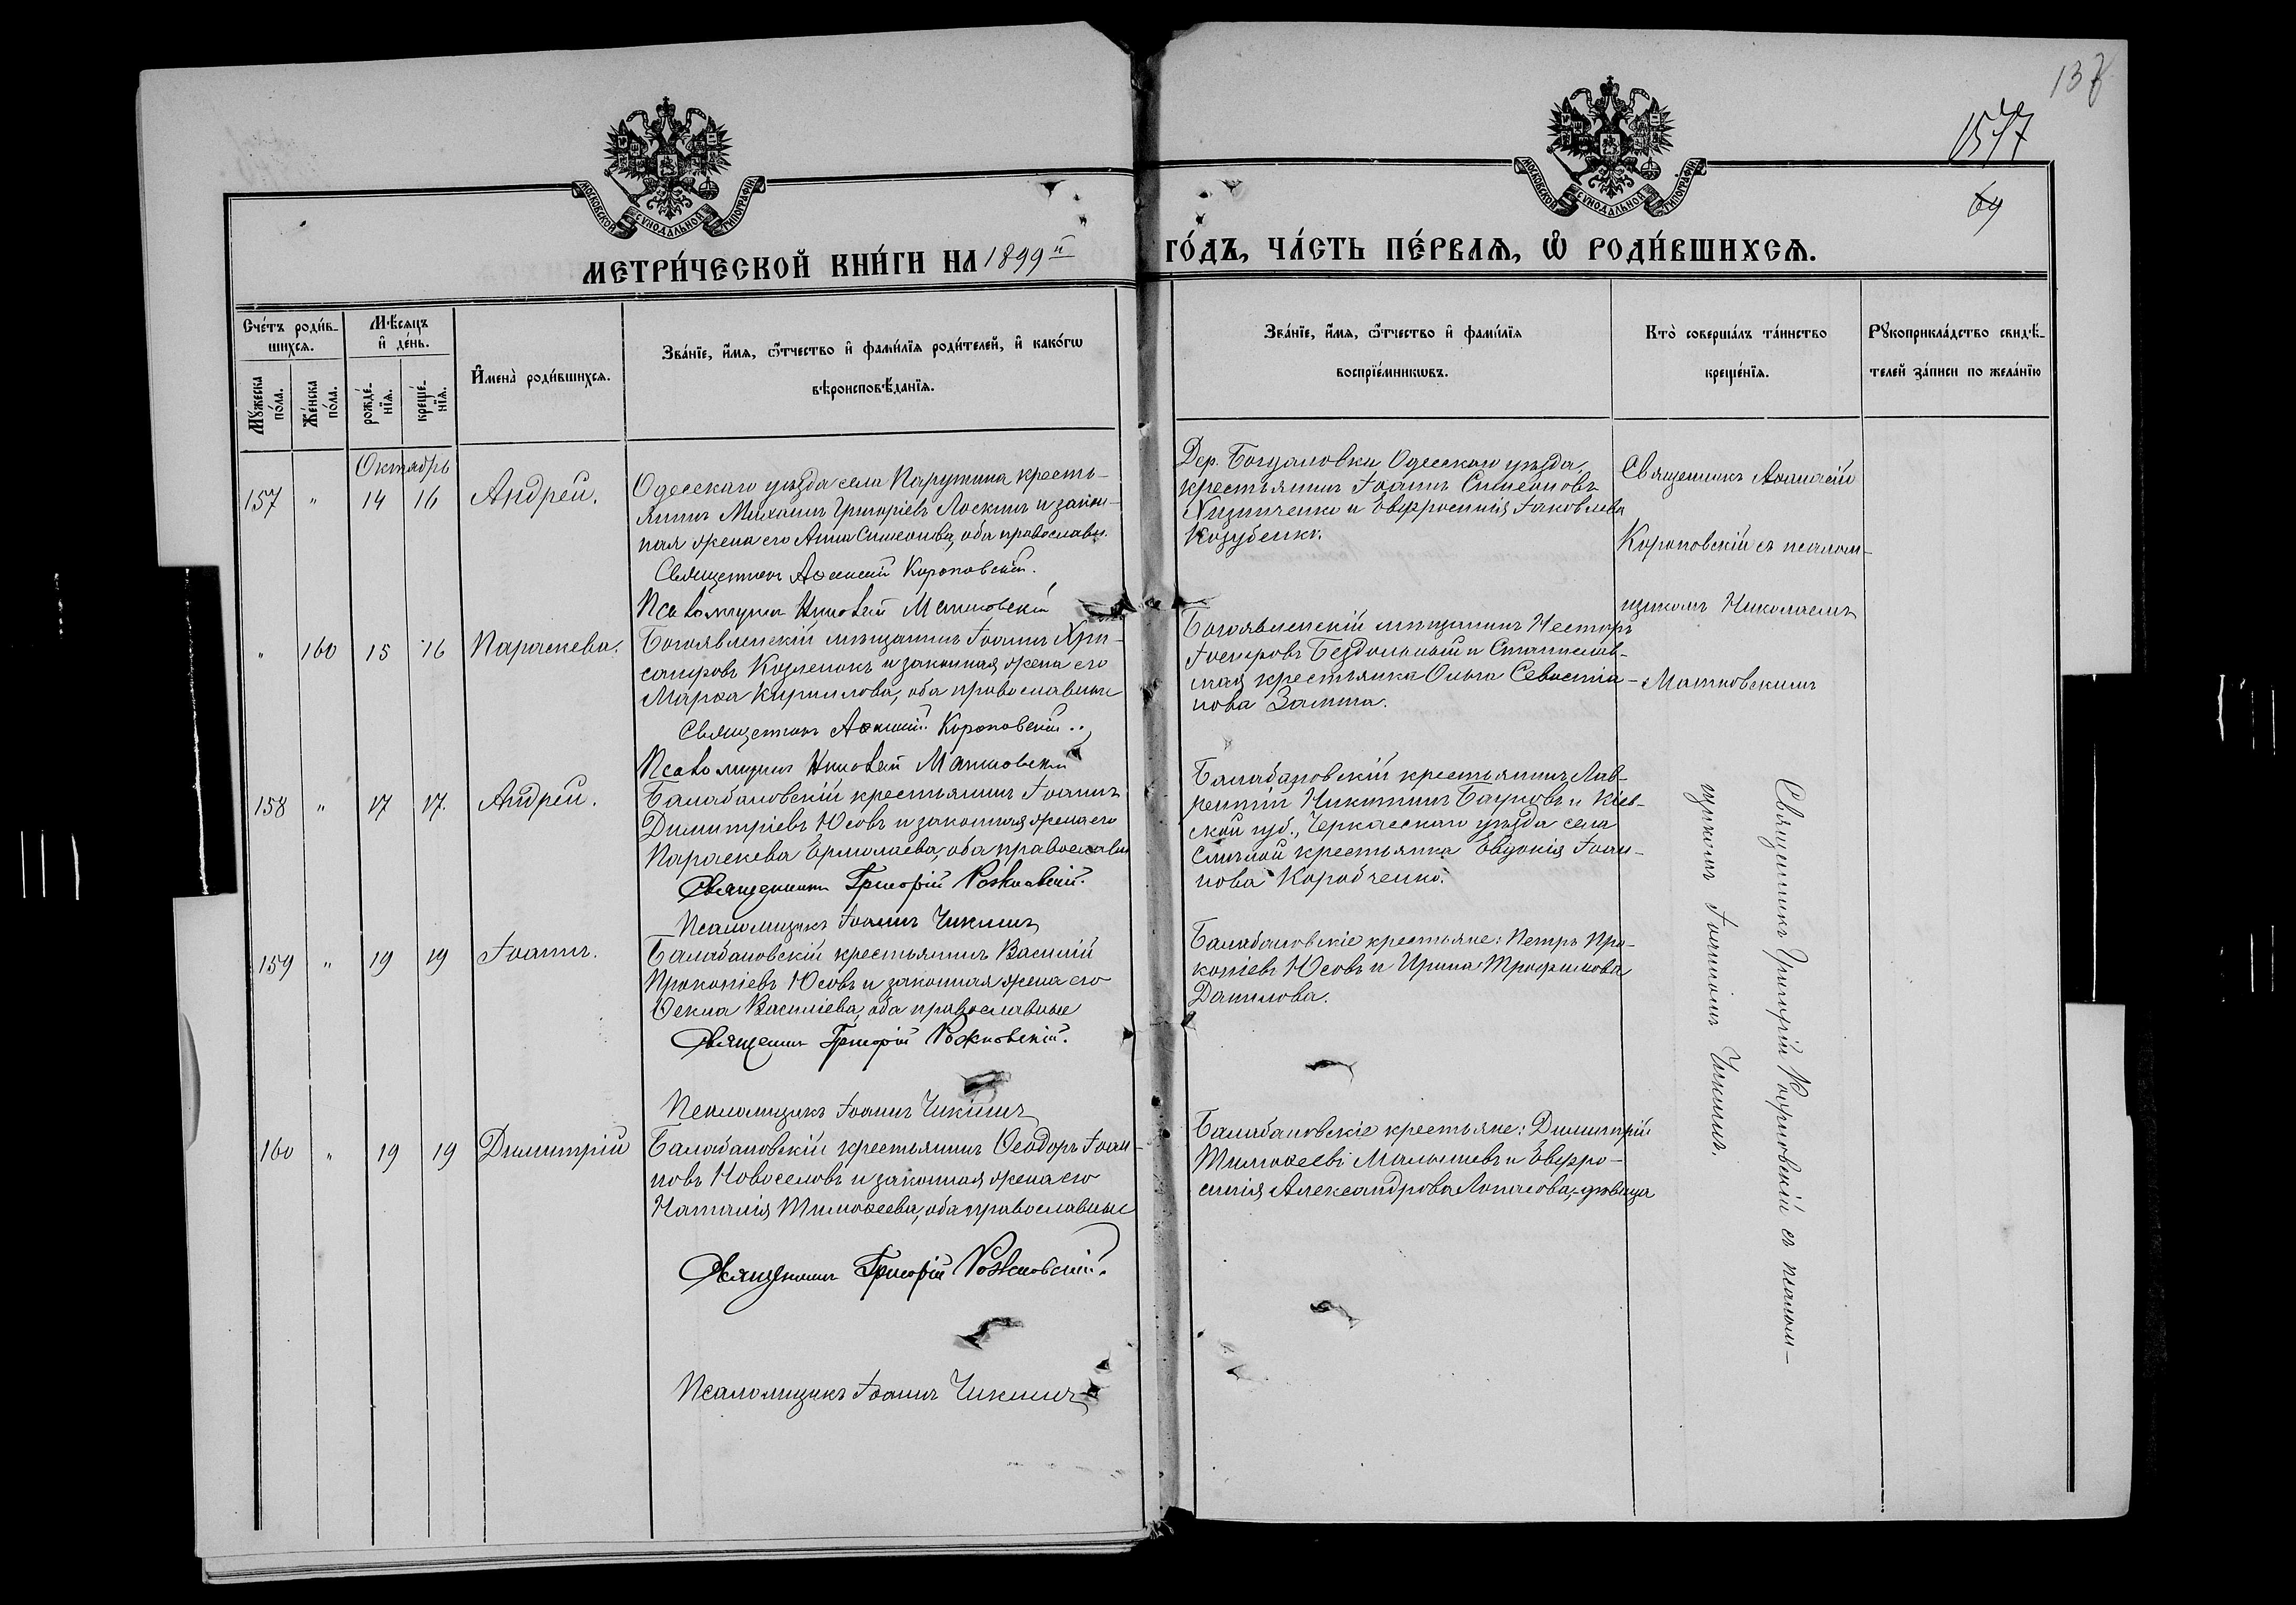 137
1577
69
МОСКОВСКОЙ СѴНОДАЛЬНОЙ ТИПОГРАФІИ
МОСКОВСКОЙ СѴНОДАЛЬНОЙ ТИПОГРАФІИ
МЕТРИ́ЧЕСКОЙ КНИ́ГИ НА 1899й
ГО́ДЪ, ЧА́СТЬ ПЕ́РВАѦ, Ѡ҆ РОДИ́ВШИХСѦ.
Сче́тъ роди́в-
шихсѧ.
Мѣ́сѧцъ
и҆ де́нь.
Мꙋ́жеска по́ла.
Же́нска по́ла.
рожде́-
нїѧ.
креще́-
нїѧ.
И҆мена̀ роди́вшихсѧ.
Зва́нїе, и҆́мѧ, ѻ҆́тчество и҆ фами́лїѧ роди́телей, и҆ како́гѡ
вѣроисповѣ́данїѧ.
Зва́нїе, и҆́мѧ, ѻ҆́тчество и҆ фами́лїѧ
воспрїе́мникѡвъ.
Кто̀ соверша́лъ та́инство
креще́нїѧ.
Рꙋкоприкла́дство свидѣ́-
телей за́писи по жела́нїю
Октябрь
157 " 14 16 Андрей.
Одесскаго уѣзда села Парутина кресть-
янинъ Михаилъ Григоріевъ Лоскинъ и закон-
ная жена его Анна Симеонова, оба православн.
Священникъ Аѳанасій Короповскій.
Псаломщикъ Николай Матковскій
Дер. Богдановки, Одесскаго уѣзда,
крестьянинъ Іоаннъ Симеоновъ
Хизниченко и Евфросинія Іаковлева
Козубенко.
Священникъ Аѳанасій
Короповскій съ псалом-
щикомъ Николаемъ
Матковскимъ
" 160 15 16 Параскева.
Богоявленскій мѣщанинъ Іоаннъ Хри-
санфовъ Козленокъ и законная жена его
Марѳа Кириллова, оба православные
Священникъ Аѳанасій Короповскій.
Псаломщикъ Николай Матковскій
Богоявленскій мѣщанинъ Несторъ
Іосифовъ Бездольный и
крестьянка Ольга Севостіа-
нова
158 " 17 17. Андрей.
Балабановскій крестьянинъ Іоаннъ
Димитріевъ Юсовъ и законная жена его
Параскева Ермолаева, оба православн
Священникъ Григорій
Псаломщикъ Іоаннъ Чикинъ
Балабановскій крестьянинъ Лав-
рентій Никитинъ и Кіев-
ской губ., Черкасскаго уѣзда села
крестьянка Евдокія Іоан-
нова Коробченко.
Священникъ Григорій съ псалом-
щикомъ Іоанномъ Чикинъ.
159 " 19 19 Іоаннъ.
Балабановскій крестьянинъ Василій
Прокопіевъ Юсовъ и законная жена его
Ѳекла Василіева, оба православные
Священникъ Григорій
Псаломщикъ Іоаннъ Чикинъ
Балабановскіе крестьяне: Петръ Про-
копіевъ Юсовъ и Ирина Трофимова
Данилова.
160 " 19 19 Димитрій
Балабановскій крестьянинъ Ѳеодоръ Іоан-
новъ Новоселовъ и законная жена его
Наталія Тимоѳеева, оба православные
Священникъ Григорій
Псаломщикъ Іоаннъ Чикинъ
Балабановскіе крестьяне: Димитрій
Тимоѳеевъ Малышевъ и Евфро-
синія Александрова Лопасова,-дѣвица